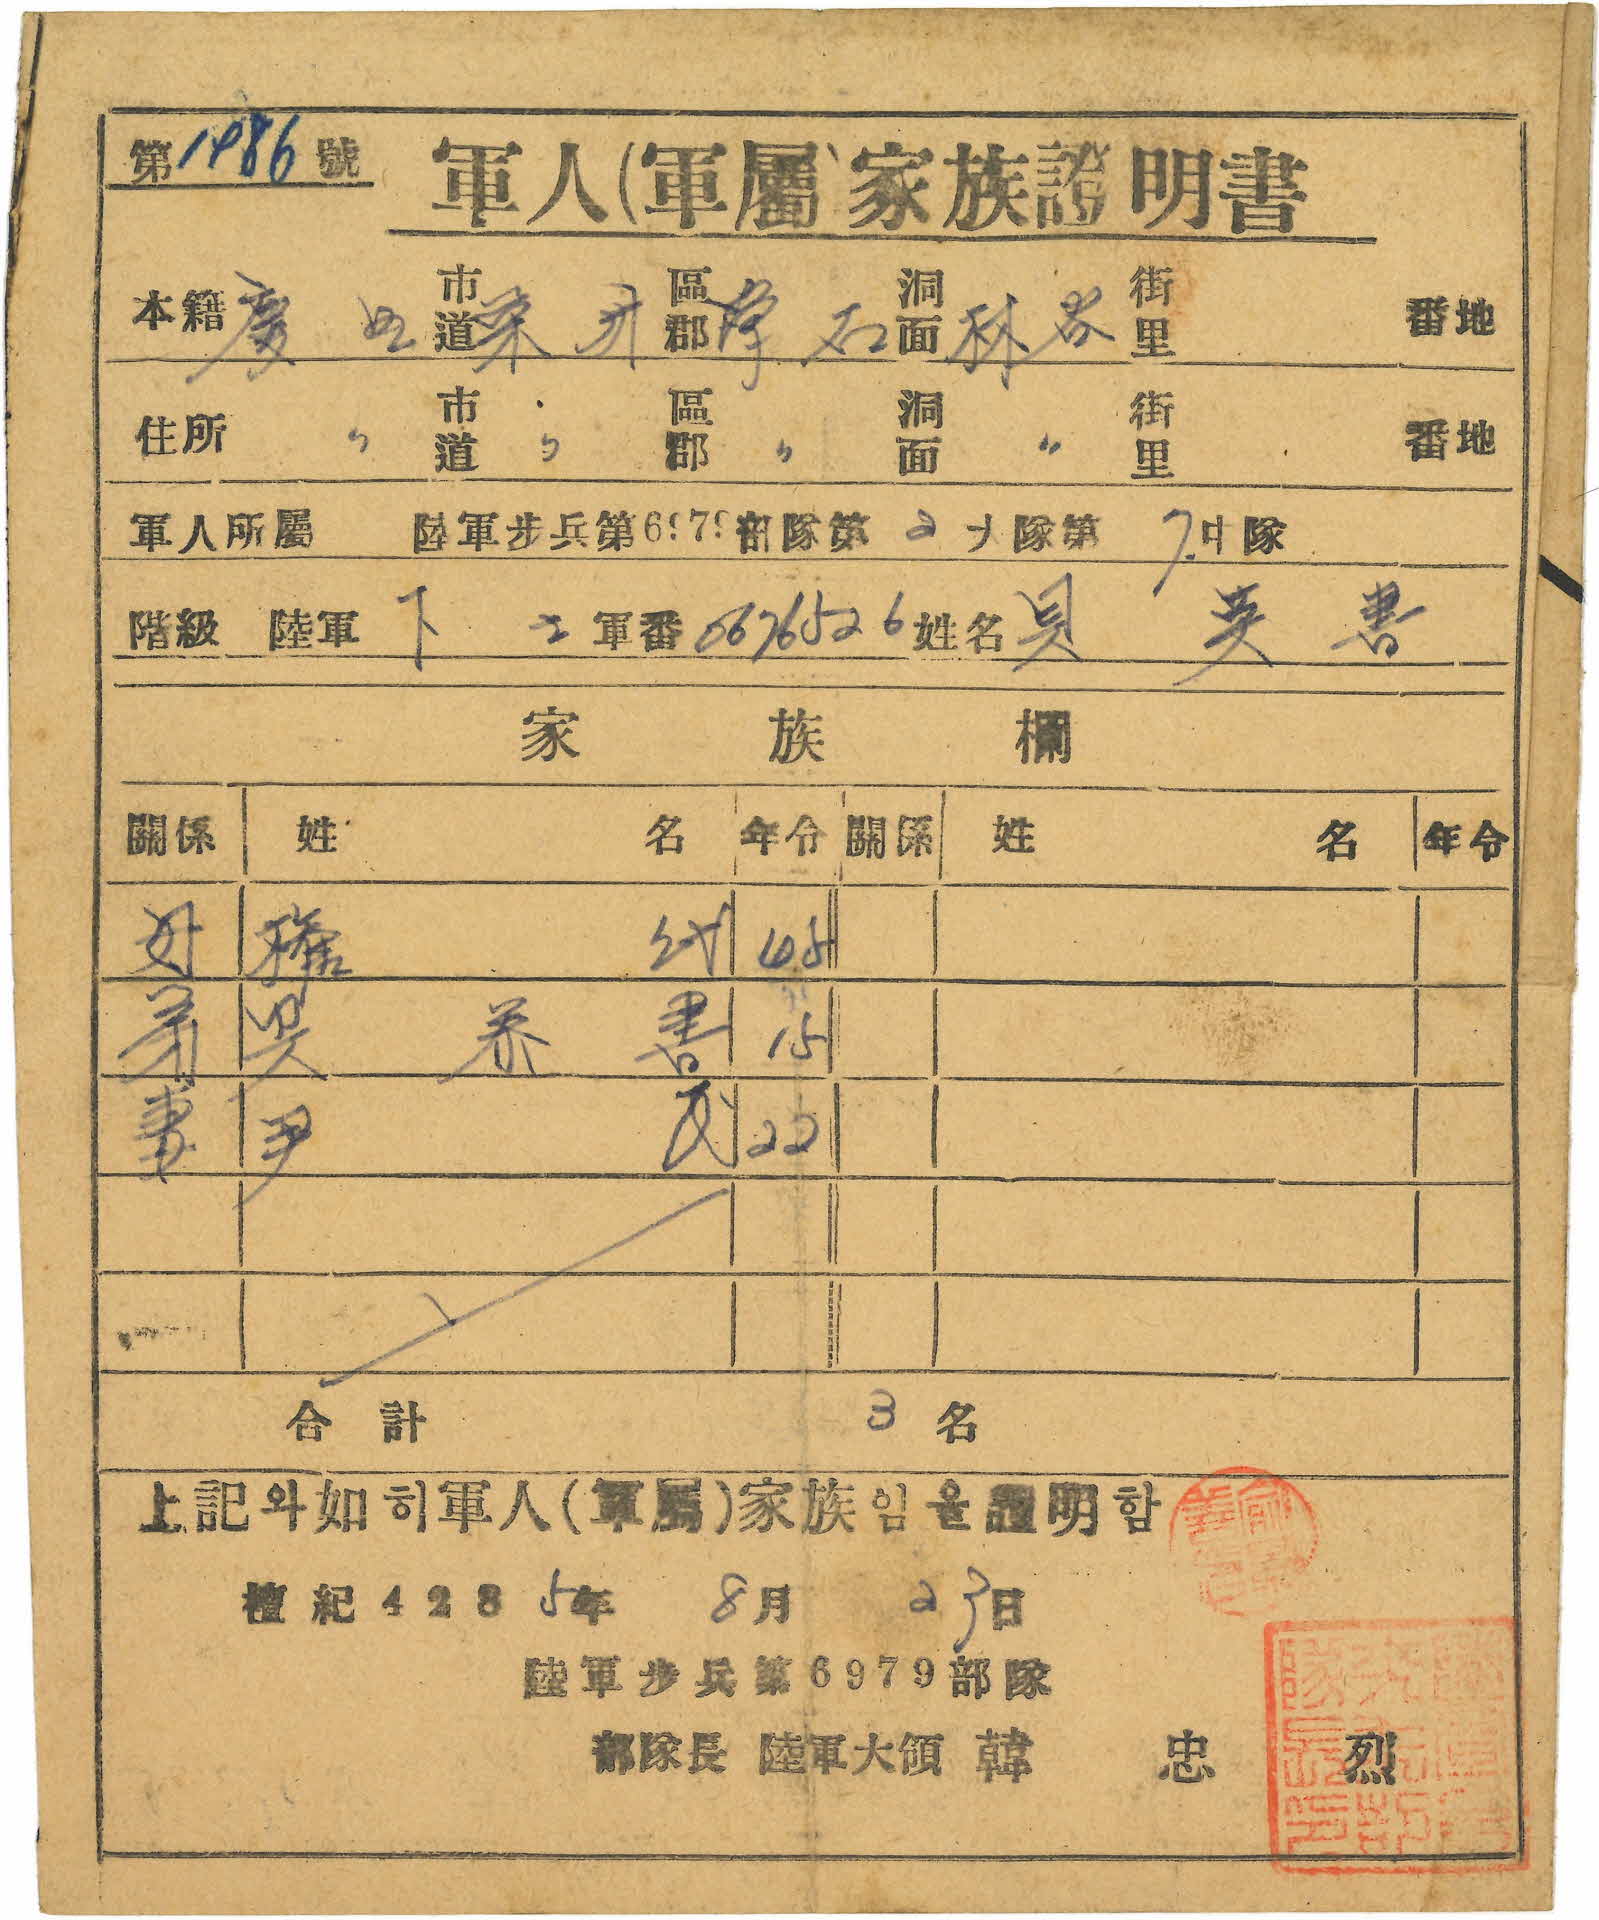 第1486號
軍人(軍屬)家族證明書
本籍 慶北 市道 榮州 區郡 浮石 洞面 林谷 街里 番地
住所 〃 市道 〃 區郡 〃 洞面 〃 街里 番地
軍人所屬 陸軍步兵第6979部隊第2大隊第7中隊
階級 陸軍 下士 軍番 6676526 姓名 吳英書
家族欄
關係 姓名 年令 關係 姓名 年令
母 45
弟 吳 書 15
妻 尹氏 22
合計 3名
上記와如히軍人(軍屬)家族임을證明함
檀紀4285年 8月 23日
陸軍步兵第6979部隊
部隊長 陸軍大領 韓忠烈